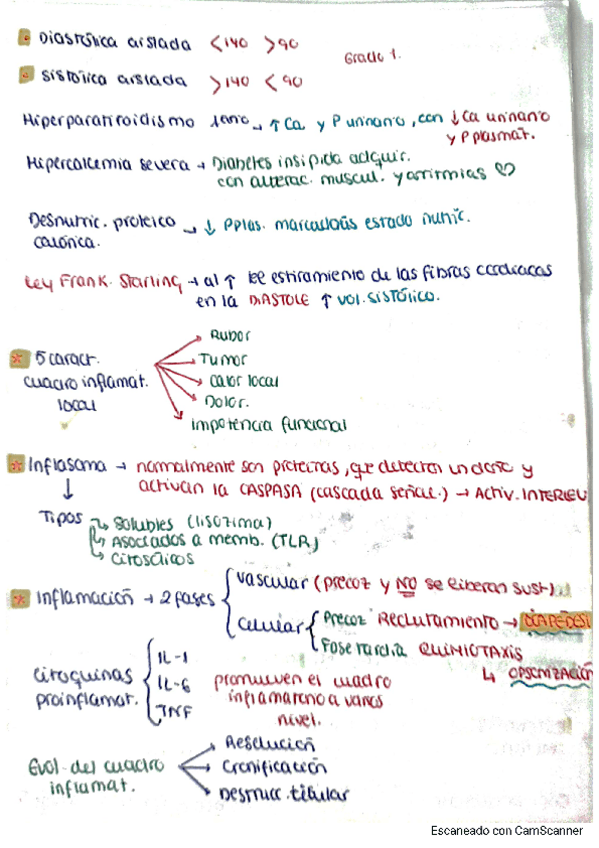 Diastólica aislada <140 >90
Grado 1.
Sistólica aislada >140 <90
Hiperparatiroidismo 1ario → ↑Ca y P urinario, con ↓Ca urinario
y P plasmat.
Hipercalcemia severa → Diabetes insípida adquir.
con alterac. muscul. y arritmias ♡
Desnutric. proteico → ↓ Pplas. marcadores estado nutric.
calórica.
Ley Frank. Starling → al ↑ el estiramiento de las fibras cardiacas
en la DIASTOLE ↑ vol. sistólico.
* 5 caract.
cuadro inflamat.
local
Rubor
Tumor
Calor local
Dolor.
impotencia funcional
* Inflasoma → normalmente son proteínas, que detectan un daño y
activan la CASPASA (cascada señal.) → Activ. INTERLEU
Tipos
Solubles (lisozima)
Asociados a memb. (TLR)
Citosólicos
* Inflamación → 2 fases
Vascular (precoz y NO se liberan sust)
Celular
Precoz RECLUTAMIENTO → DIAPEDESI
Fase tardía QUIMIOTAXIS
↳ OPSONIZACIÓN
Citoquinas
proinflamat.
IL-1
IL-6
TNF
promueven el cuadro
inflamatorio a varios
nivel.
Evol. del cuadro
inflamat.
Resolución
Cronificación
Destrucc. titular
Escaneado con CamScanner